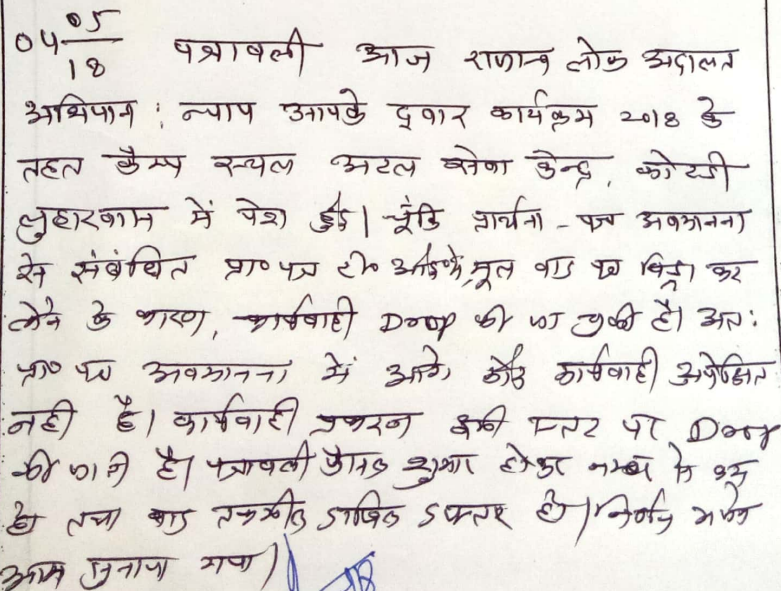 04 05/18 पत्रावली आज राजस्व लोक अदालत
अभियान : न्याय आपके द्वार कार्यक्रम 2018 के
तहत कैम्प स्थल अटल सेवा केन्द्र, कोटडी
लुहारवास में पेश हुई। चूंकि प्रार्थना-पत्र अवमानना
से संबंधित प्रा० पत्र टी० आई० के, मूल वाद पत्र विड्रा कर
लेने के कारण, कार्यवाही Drop की जा चुकी है। अतः
प्रा० पत्र अवमानना में आगे कोई कार्यवाही अपेक्षित
नही है। कार्यवाही प्रकरण इसी स्तर पर Drop
की जाती है। पत्रावली फैसल शुमार होकर नम्बर से कम
हो तथा बाद तकमील दाखिल दफ्तर हो। निर्णय सरे
आम सुनाया गया।